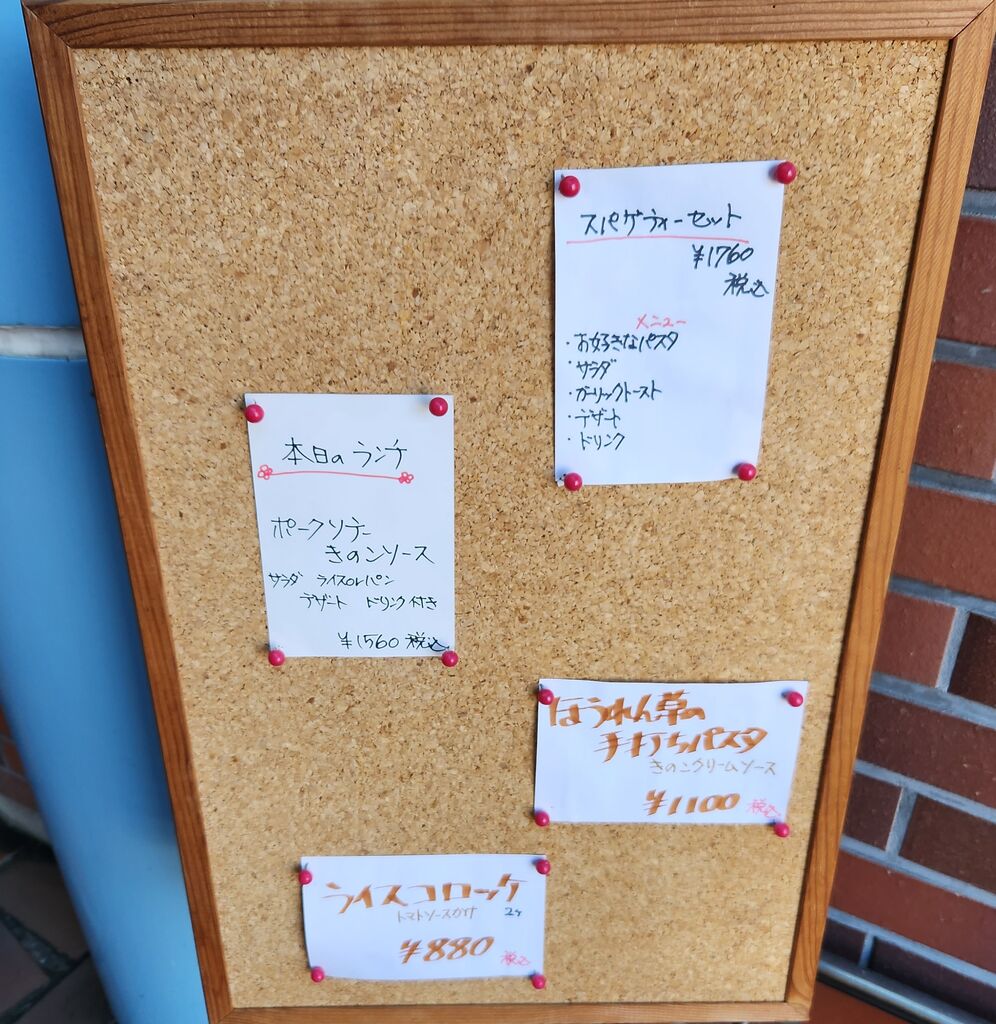 スパゲティーセット
¥1760
税込
メニュー
・お好きなパスタ
・サラダ
・ガーリックトースト
・デザート
・ドリンク
本日のランチ
ポークソテー
きのこソース
サラダ ライスorパン
デザート ドリンク付き
¥1560 税込
ほうれん草の
手打ちパスタ
きのこクリームソース
¥1100 税込
ライスコロッケ
トマトソースがけ 2ヶ
¥880 税込